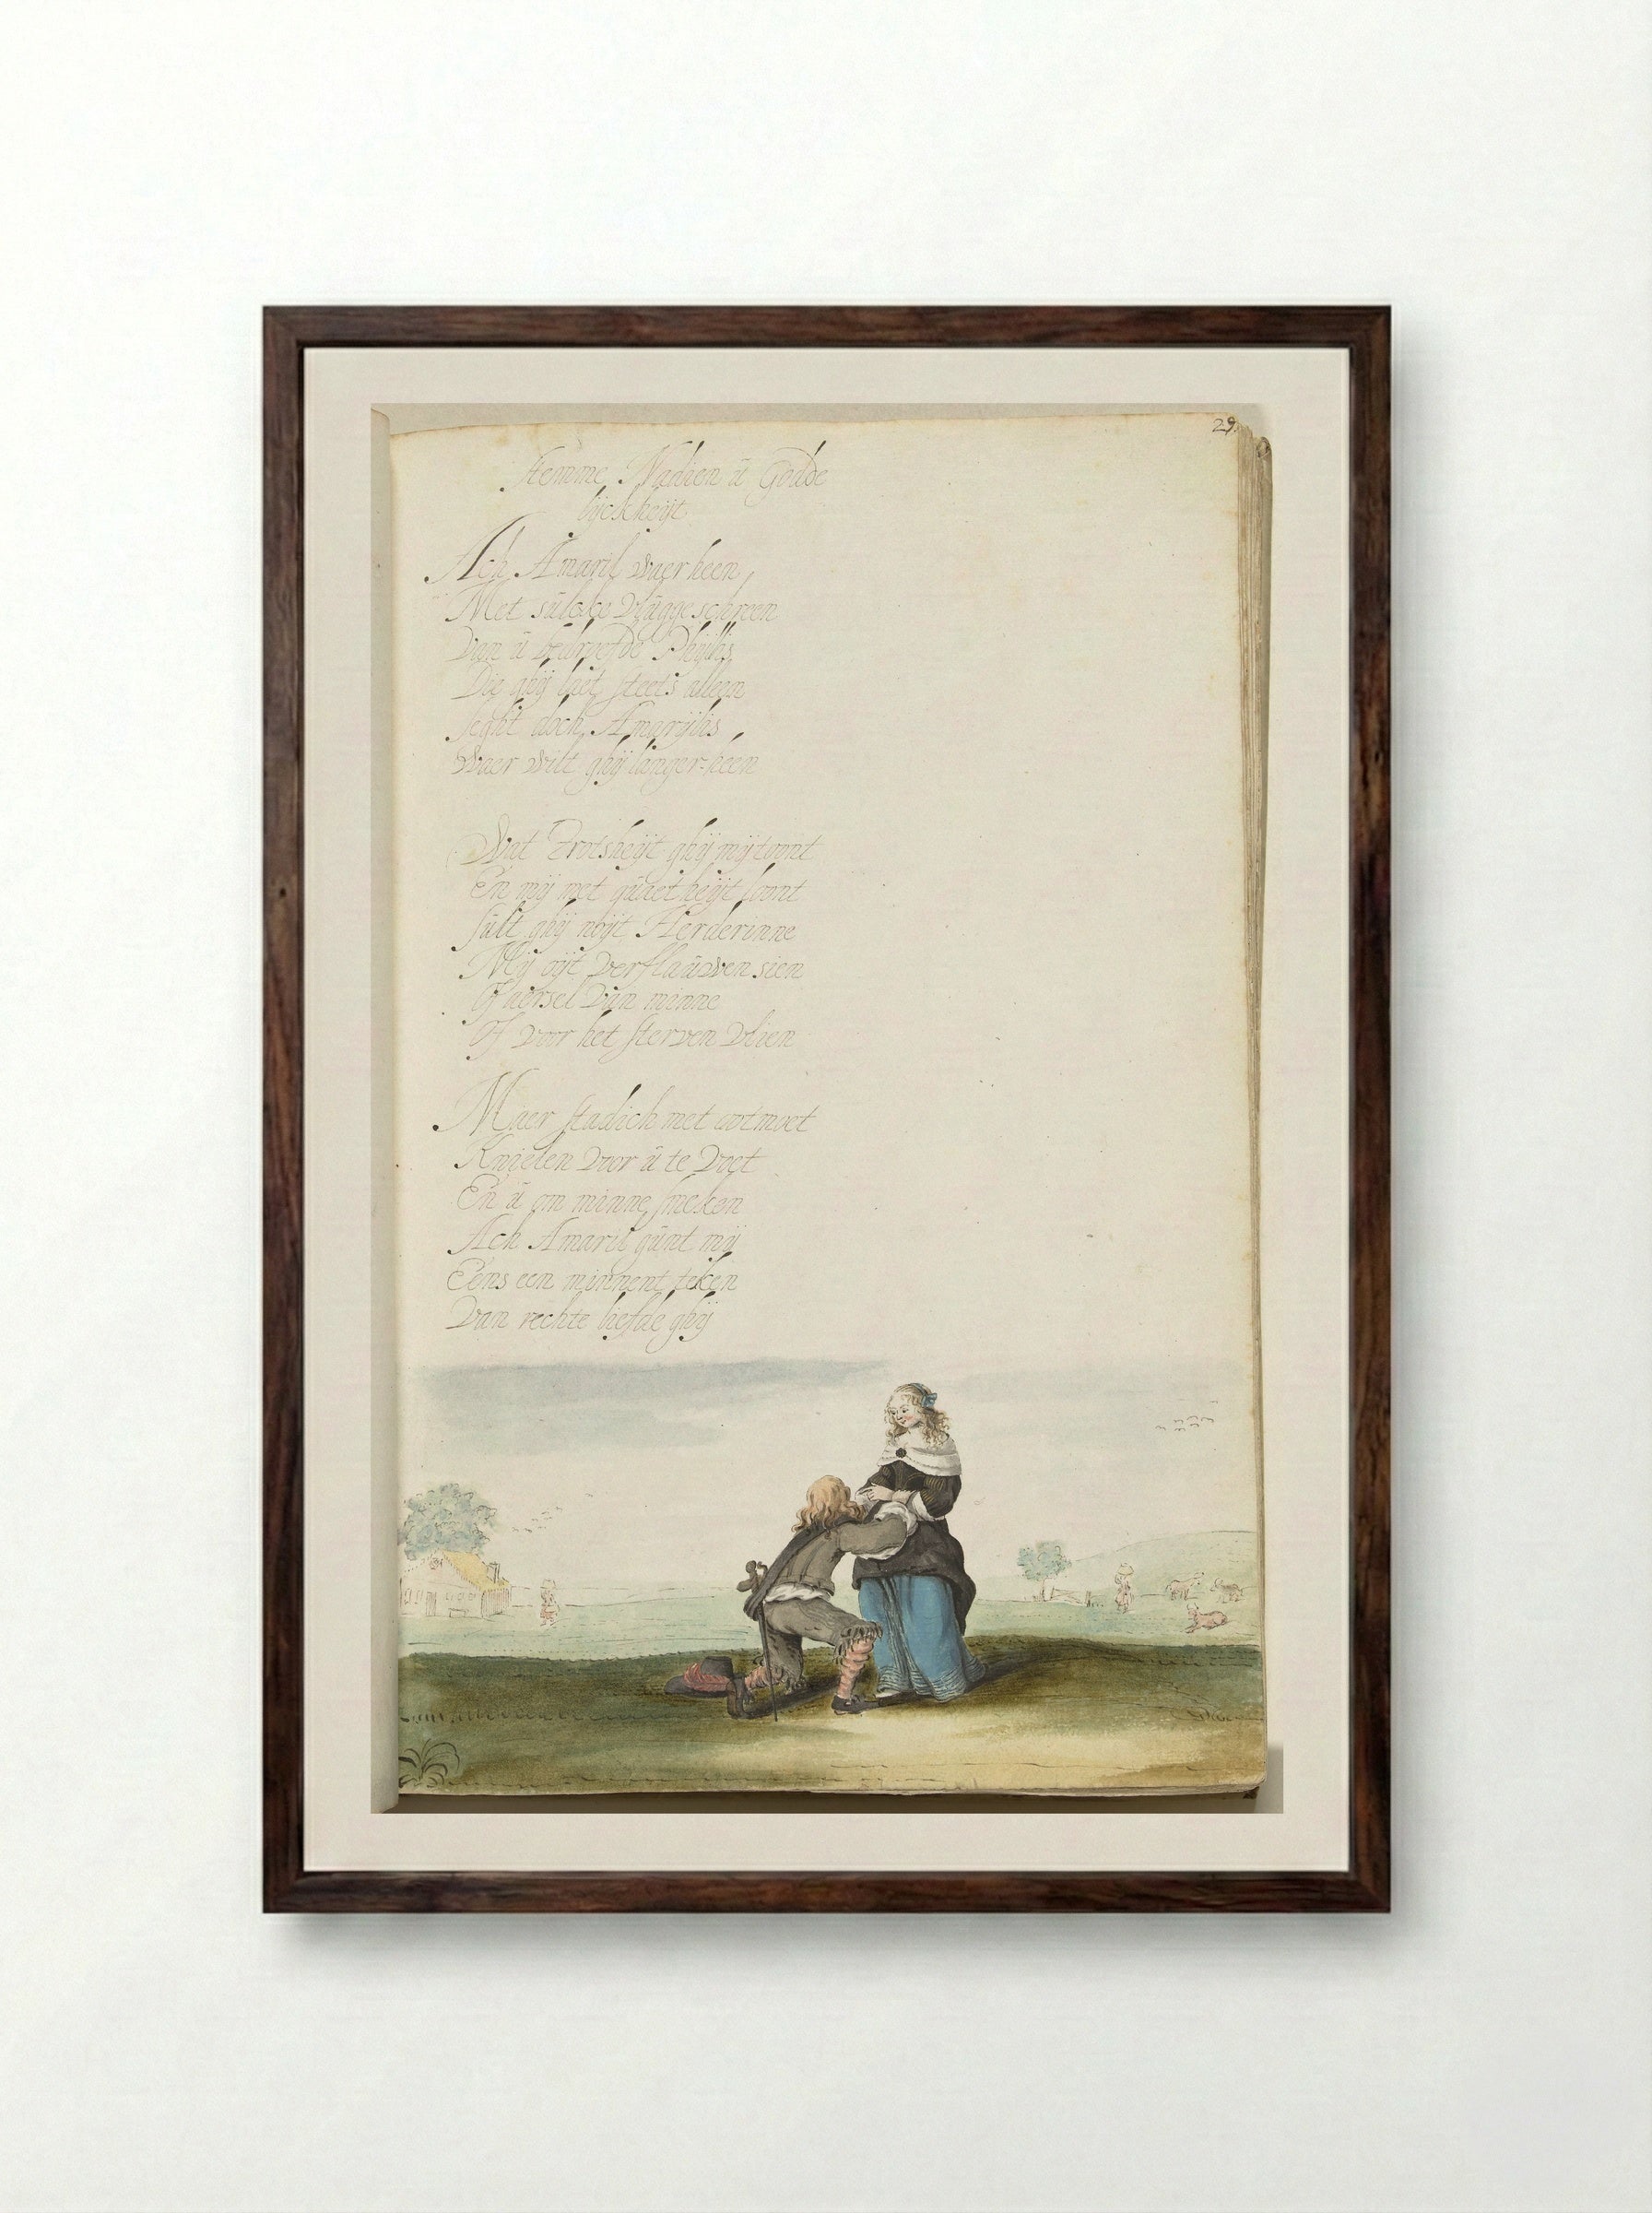 29.
stemme Nadien ū Godde
lijckheijt
Ach Amaril waer heen,
Met sulcke vlūgge schreen
Van ū bedroefde Phijllis
Die ghij laet steets alleen
seght doch Amarijlis
Waer wilt ghij langer-heen
Wat Trotsheijt ghij mij toont
En mij met quaetheijt loont
sūlt ghij noijt Herderinne
Mij oijt verflaūwen sien
Of aersel van minne
Of voor het sterven vlien
Maer stadich met ootmoet
Knielen voor ū te voet
En ū om minne smeken
Ach Amaril gūnt mij
Eens een minnent teken
Van rechte liefde ghij